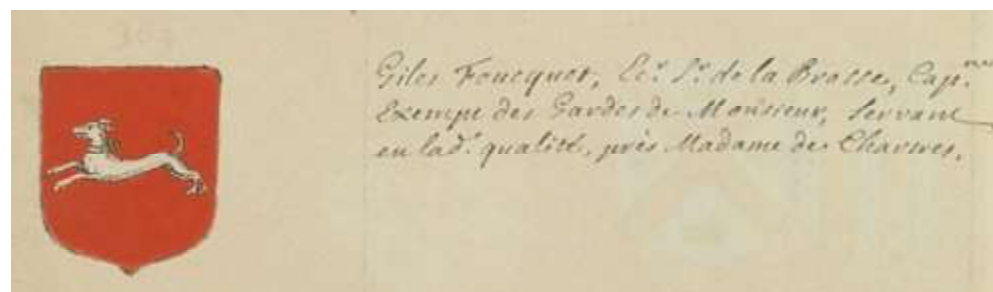 303
Giles Foucquet, Ecr. Sr. de la Brosse, Cap.ne
Exempt des Gardes de Monsieur, Servant
en lad.e qualité, près Madame de Chartres.